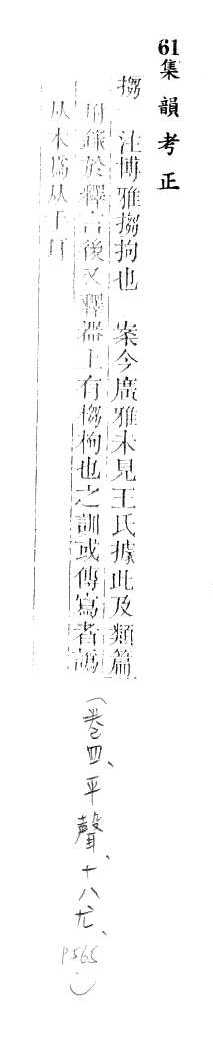 61集韻考正
搊 注博雅搊拘也 案今廣雅未見王氏據此及類篇
錄於釋言後又釋器上有搊枸也之訓或傳寫者譌
从木為从手耳
(卷四、平聲、十八尤、P565)